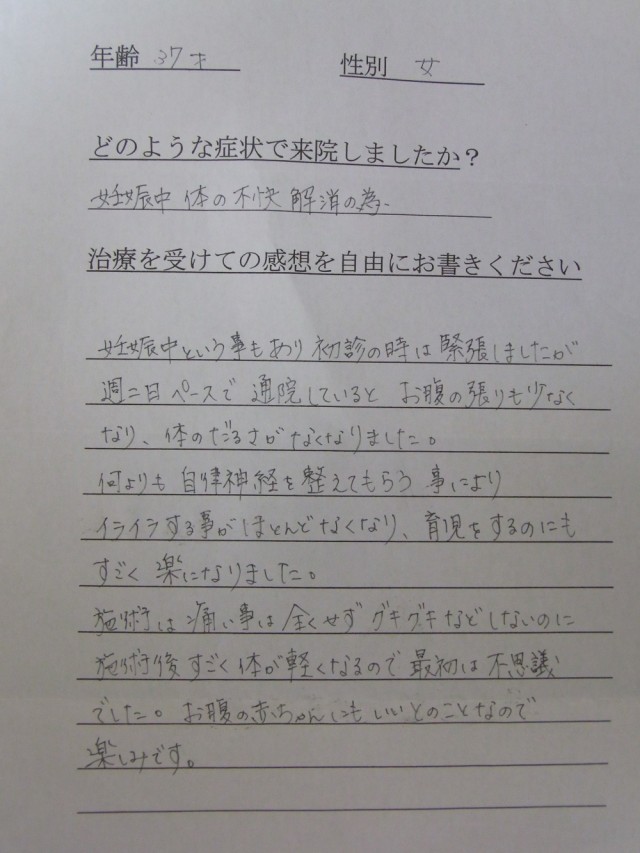 年齢 37才 性別 女
どのような症状で来院しましたか？
妊娠中 体の不快 解消の為
治療を受けての感想を自由にお書きください
妊娠中という事もあり 初診の時は 緊張しましたが
週二日ペースで 通院していると お腹の張りも少なく
なり、体のだるさがなくなりました。
何よりも 自律神経を整えてもらう 事により
イライラする事がほとんどなくなり、育児をするのにも
すごく 楽になりました。
施術は痛い事は全くせずグキグキなどしないのに
施術後 すごく体が軽くなるので 最初は不思議
でした。お腹の赤ちゃんにもいいとのことなので
楽しみです。